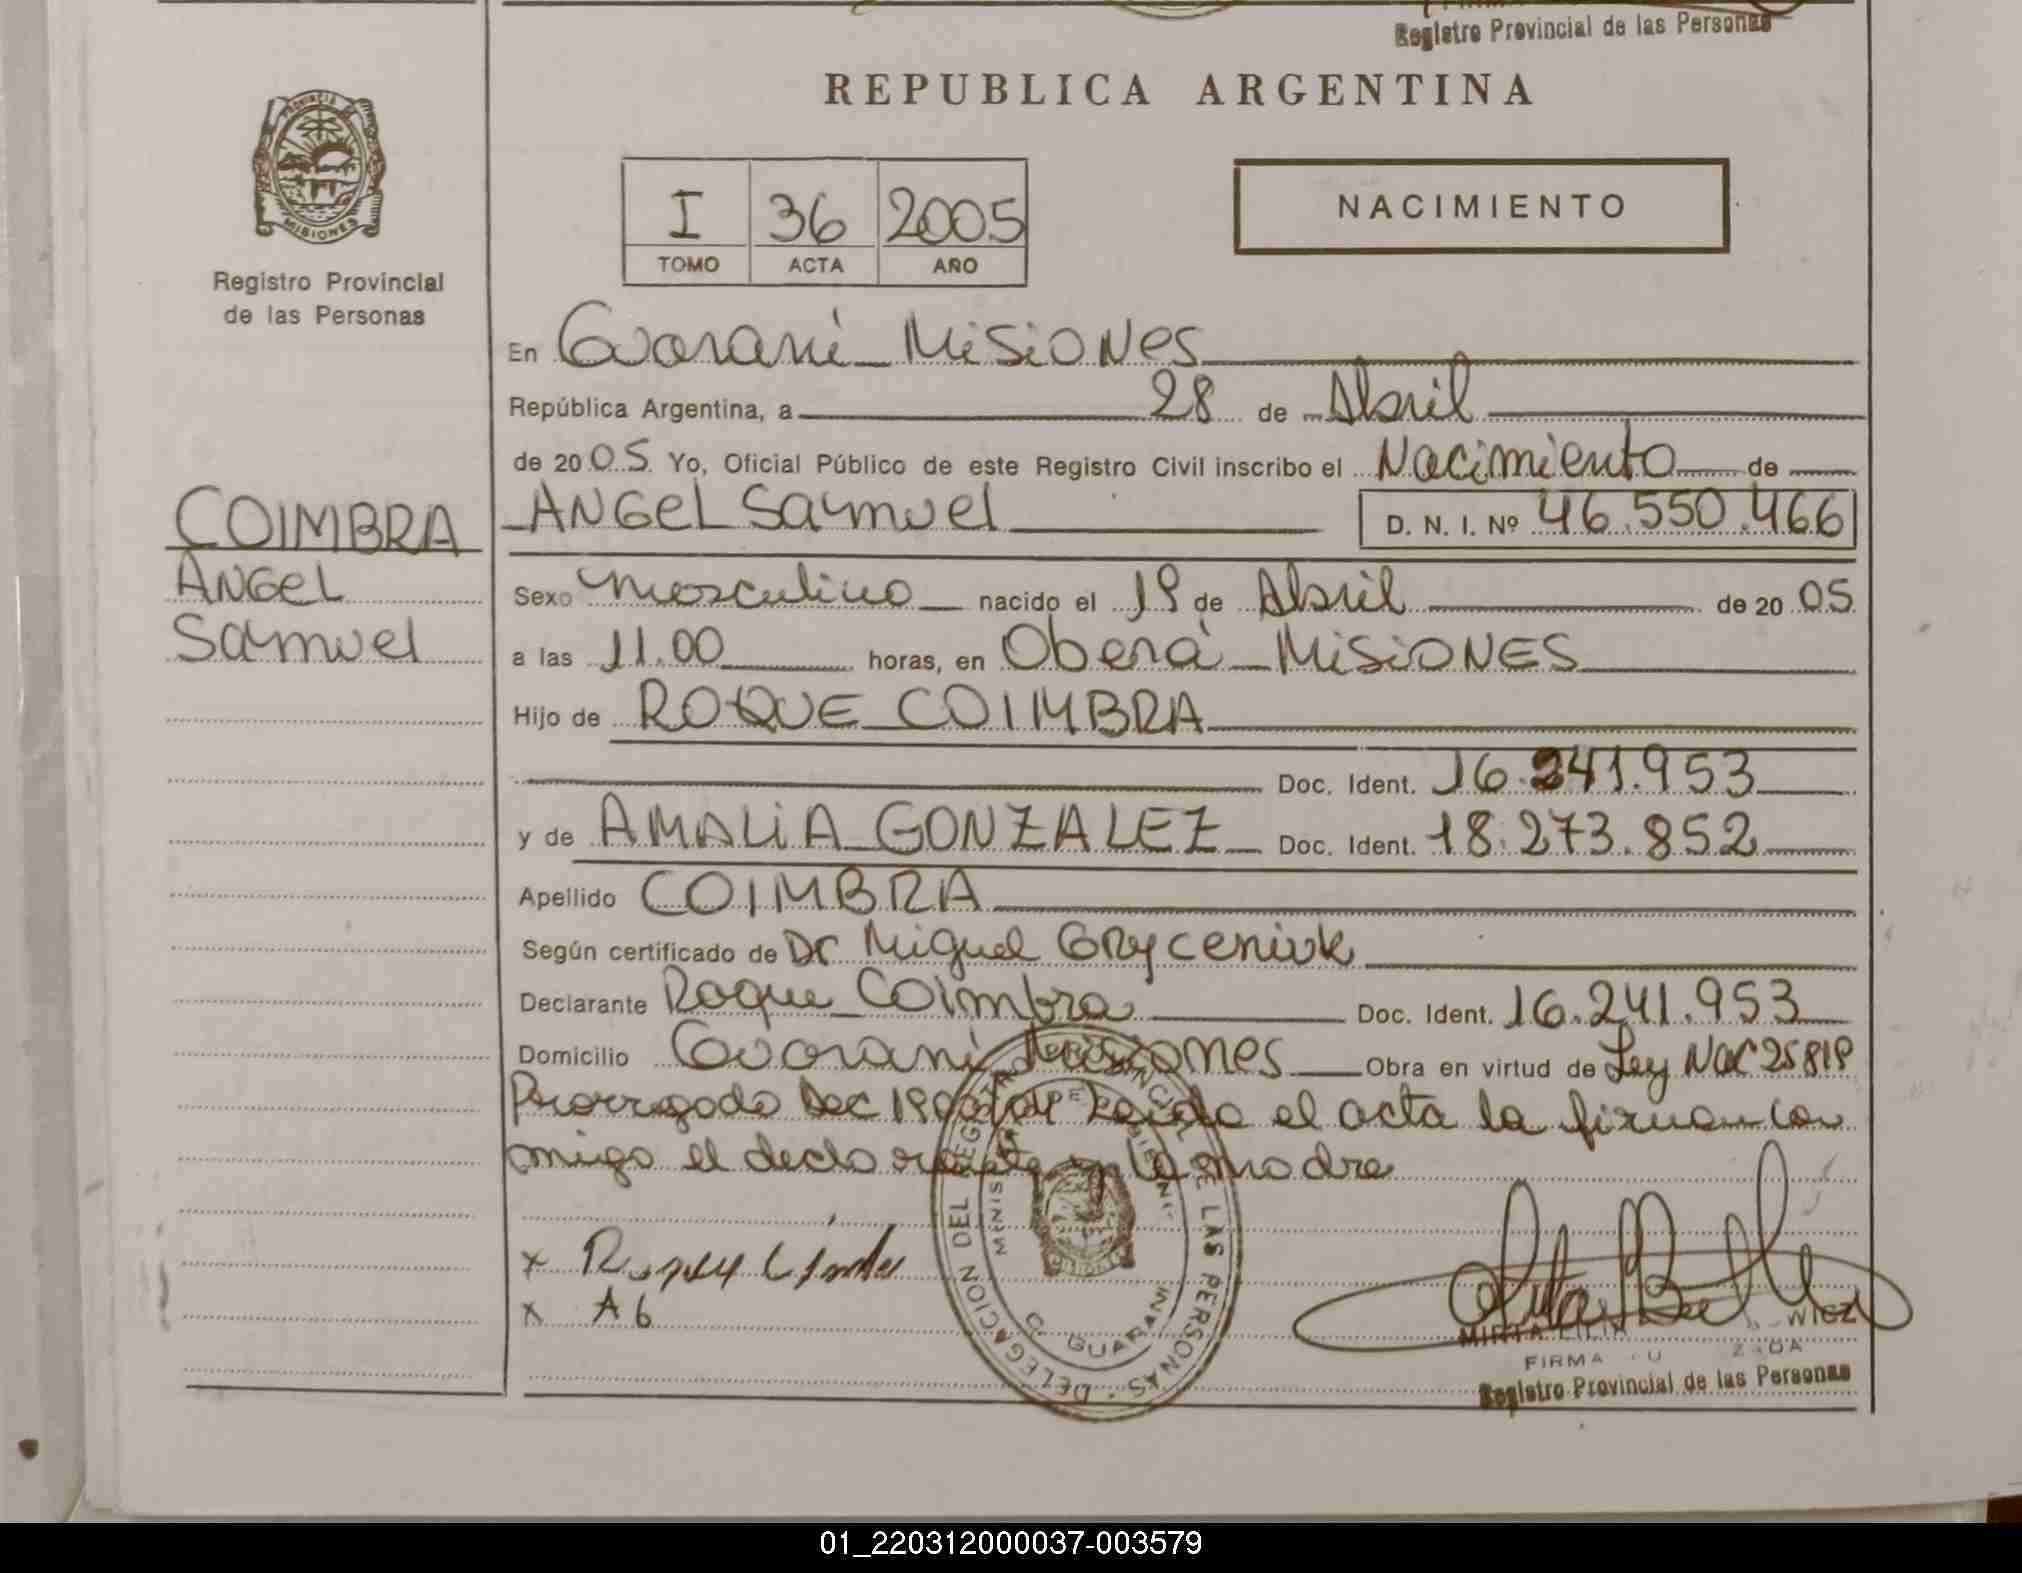 Registro Provincial de las Personas
REPUBLICA ARGENTINA
PROVINCIA DE
MISIONES
Registro Provincial
de las Personas
I 36 2005
TOMO ACTA AÑO
NACIMIENTO
En Guaraní Misiones
República Argentina, a 28 de Abril
de 2005 Yo, Oficial Público de este Registro Civil inscribo el Nacimiento de
COIMBRA
ANGEL
Samuel
ANGEL Samuel D. N. I. Nº 46.550.466
Sexo Masculino nacido el 19 de Abril de 2005
a las 11.00 horas, en Oberá Misiones
Hijo de ROQUE COIMBRA
Doc. Ident. 16.241.953
y de AMALIA GONZALEZ Doc. Ident. 18.273.852
Apellido COIMBRA
Según certificado de Dr Miguel Gryceniuk
Declarante Roque Coimbra Doc. Ident. 16.241.953
Domicilio Guaraní Misiones Obra en virtud de Ley Nac 25819
Prorrogado Dec el acta la firman con
migo el declarante y la madre
x
x A G
DELEGACION DEL REGISTRO PROVINCIAL DE LAS PERSONAS
GUARANI
MIRTA LILIA WIEZ
FIRMA
Registro Provincial de las Personas
01_220312000037-003579